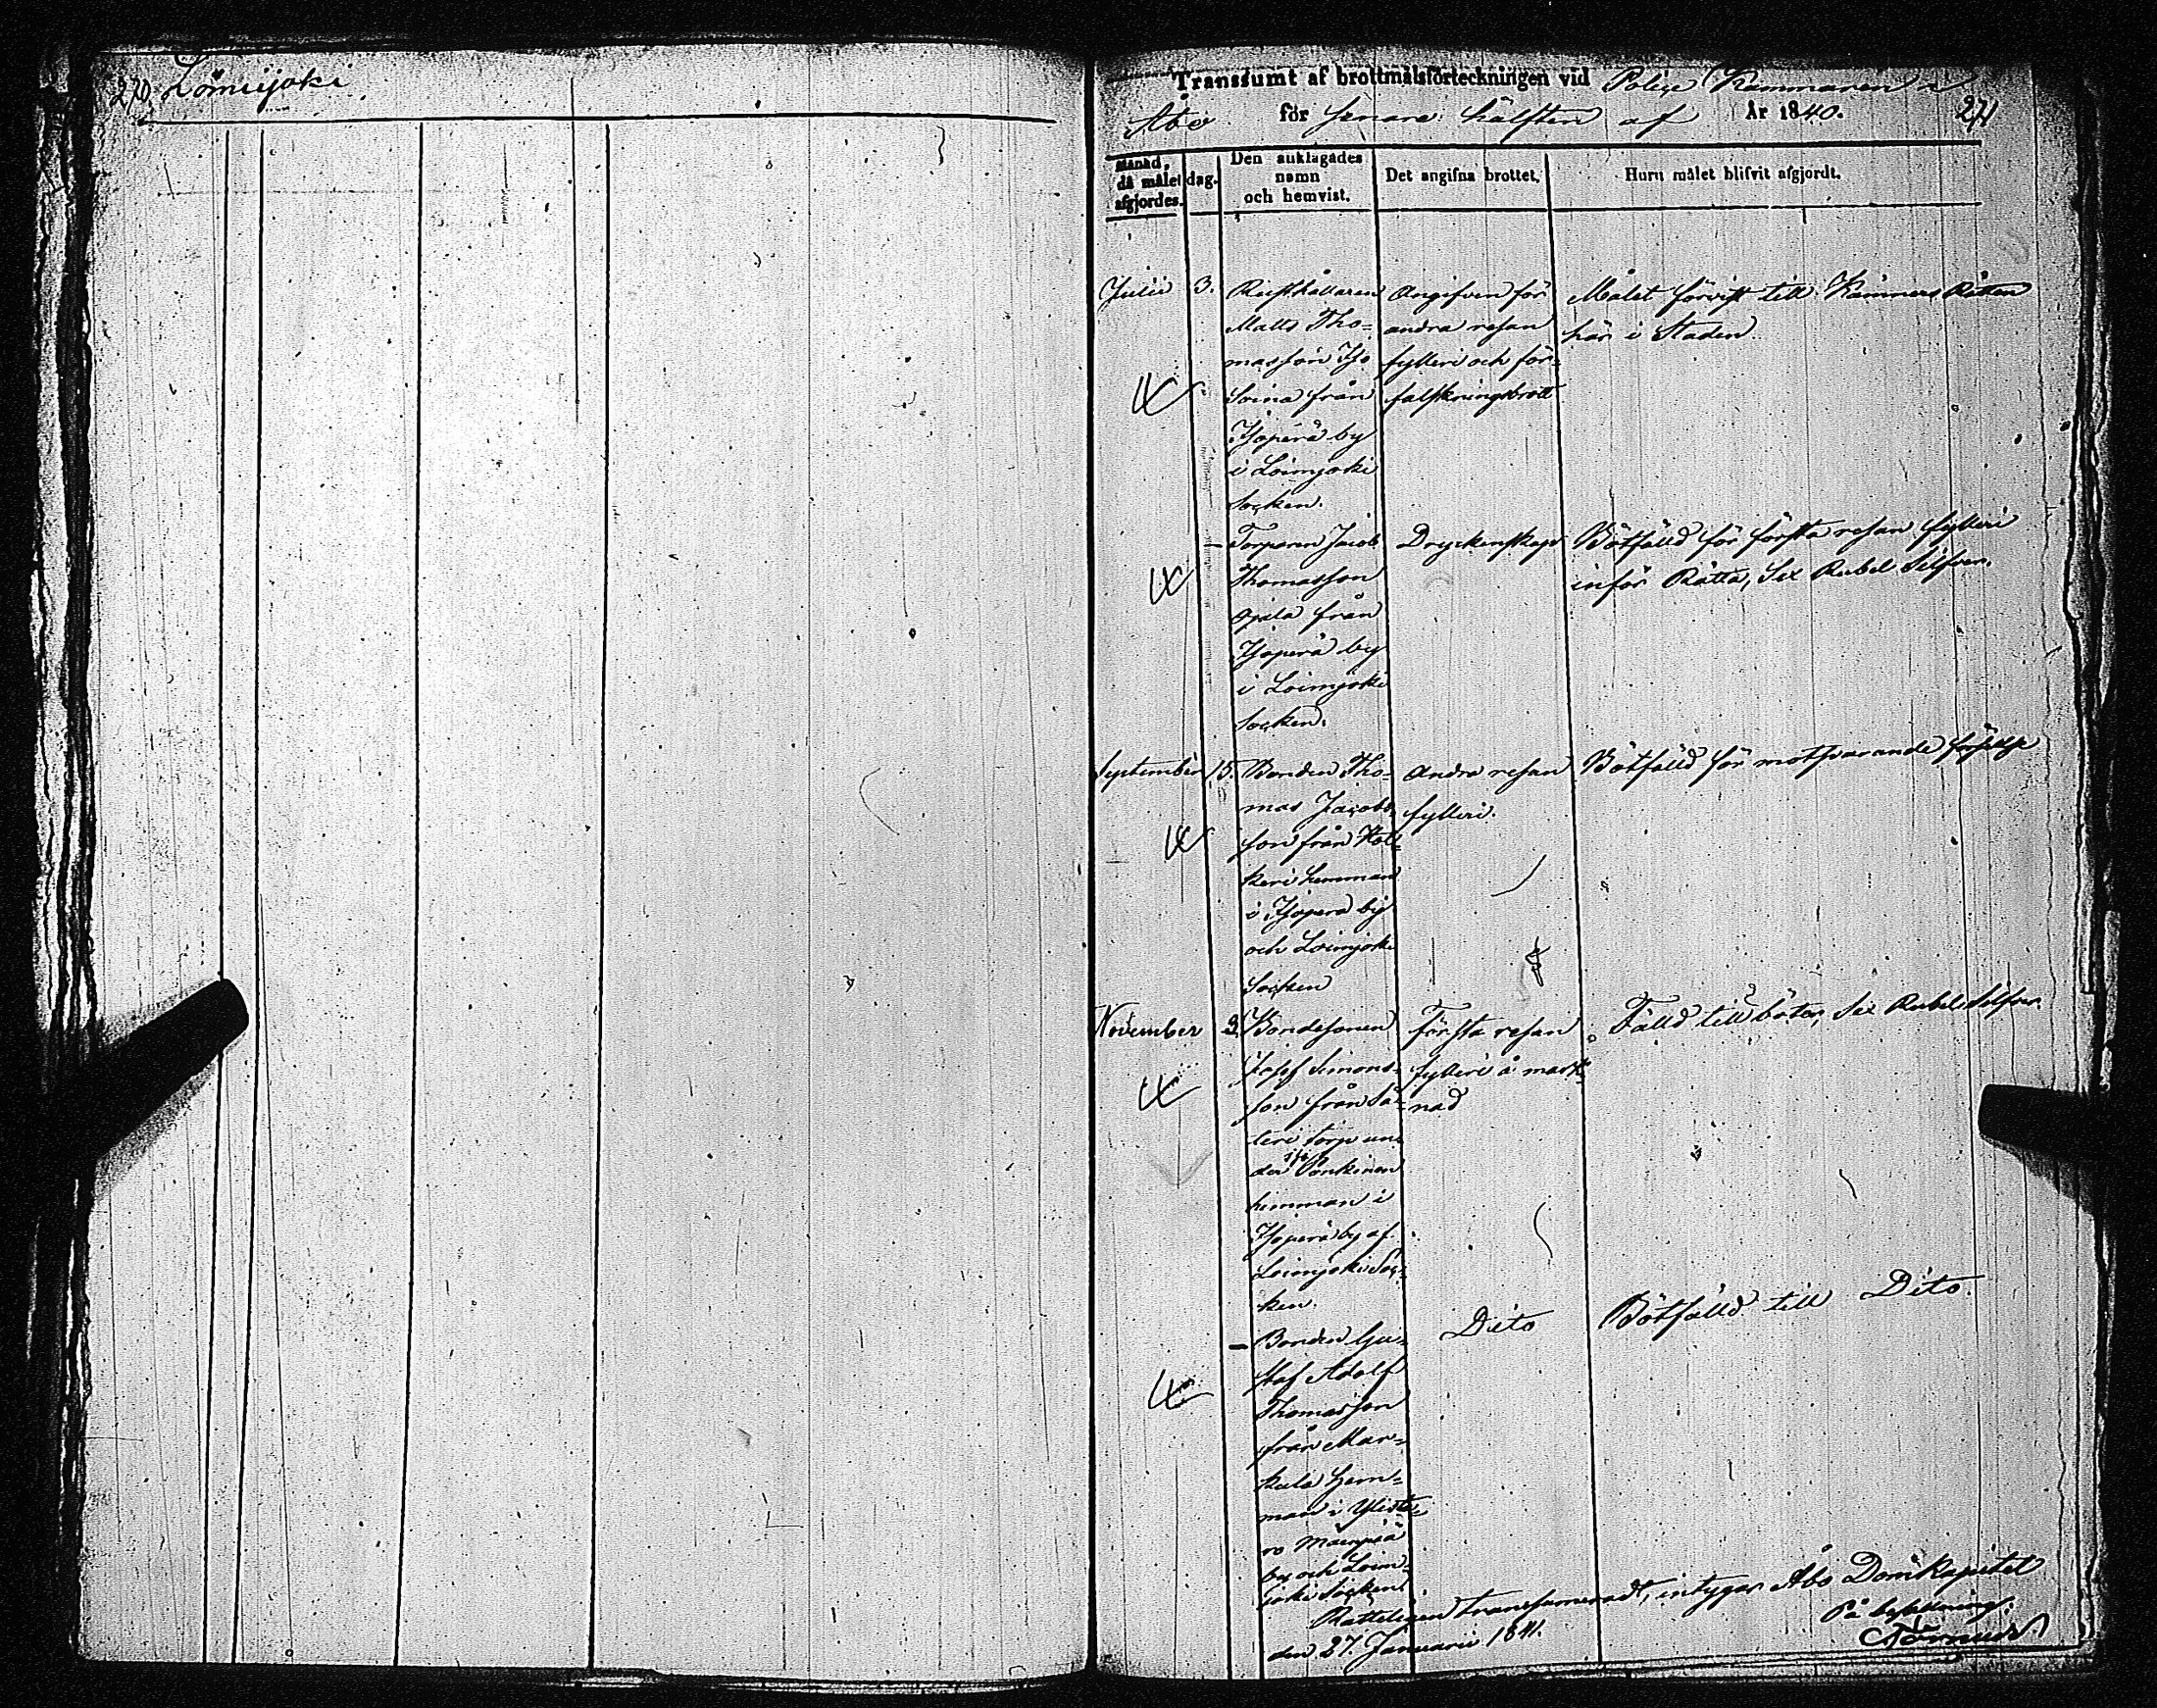 270. Loimijoki
Transsumt af brottmålsförteckningen vid Polise Kammaren i
Åbo för senare hälften af År 1840. 271
Månad,
då målet
afgjordes.
dag.
Den anklagades
namn
och hemvist.
Det angifna brottet.
Huru målet blifvit afgjordt.
Julii 3.
Rusthållaren
Matts Tho-
masson Iso
Soina från
Isoperä by
i Loimjoki
Socken.
Angifven för
andra resan
fylleri och för-
falskningsbrott
Målet förvist till Kämners Rätten
här i Staden
— Torparen Jacob
Thomasson
Ojala från
Isoperä by
i Loimjoki
Socken.
Dryckenskap
Bötfälld för första resan fylleri
inför Rätta, Sex Rubel Silfver.
September 15.
Bonden Tho-
mas Jacobs-
son från
hemman
i Isoperä by
och Loimjoki
Socken
Andra resan
fylleri.
Bötfälld för motsvarande förseelse
November 9.
Bondesonen
Josef Simons-
son från
torp un-
der Iso Pänkinen
hemman i
Isoperä by af
Loimjoki Soc-
ken.
Första resan
fylleri å mark-
nad
Fälld till böter, Sex Rubel Silfver.
— Bonden Gu-
staf Adolf
Thomasson
från Mar-
kula hem-
man i
by och Loim-
joki Socken
Dito
Bötfälld till Dito.
Rätteligen transsumeradt, intygar Åbo DomKapitel
den 27. Januarii 1841.
På befallning: